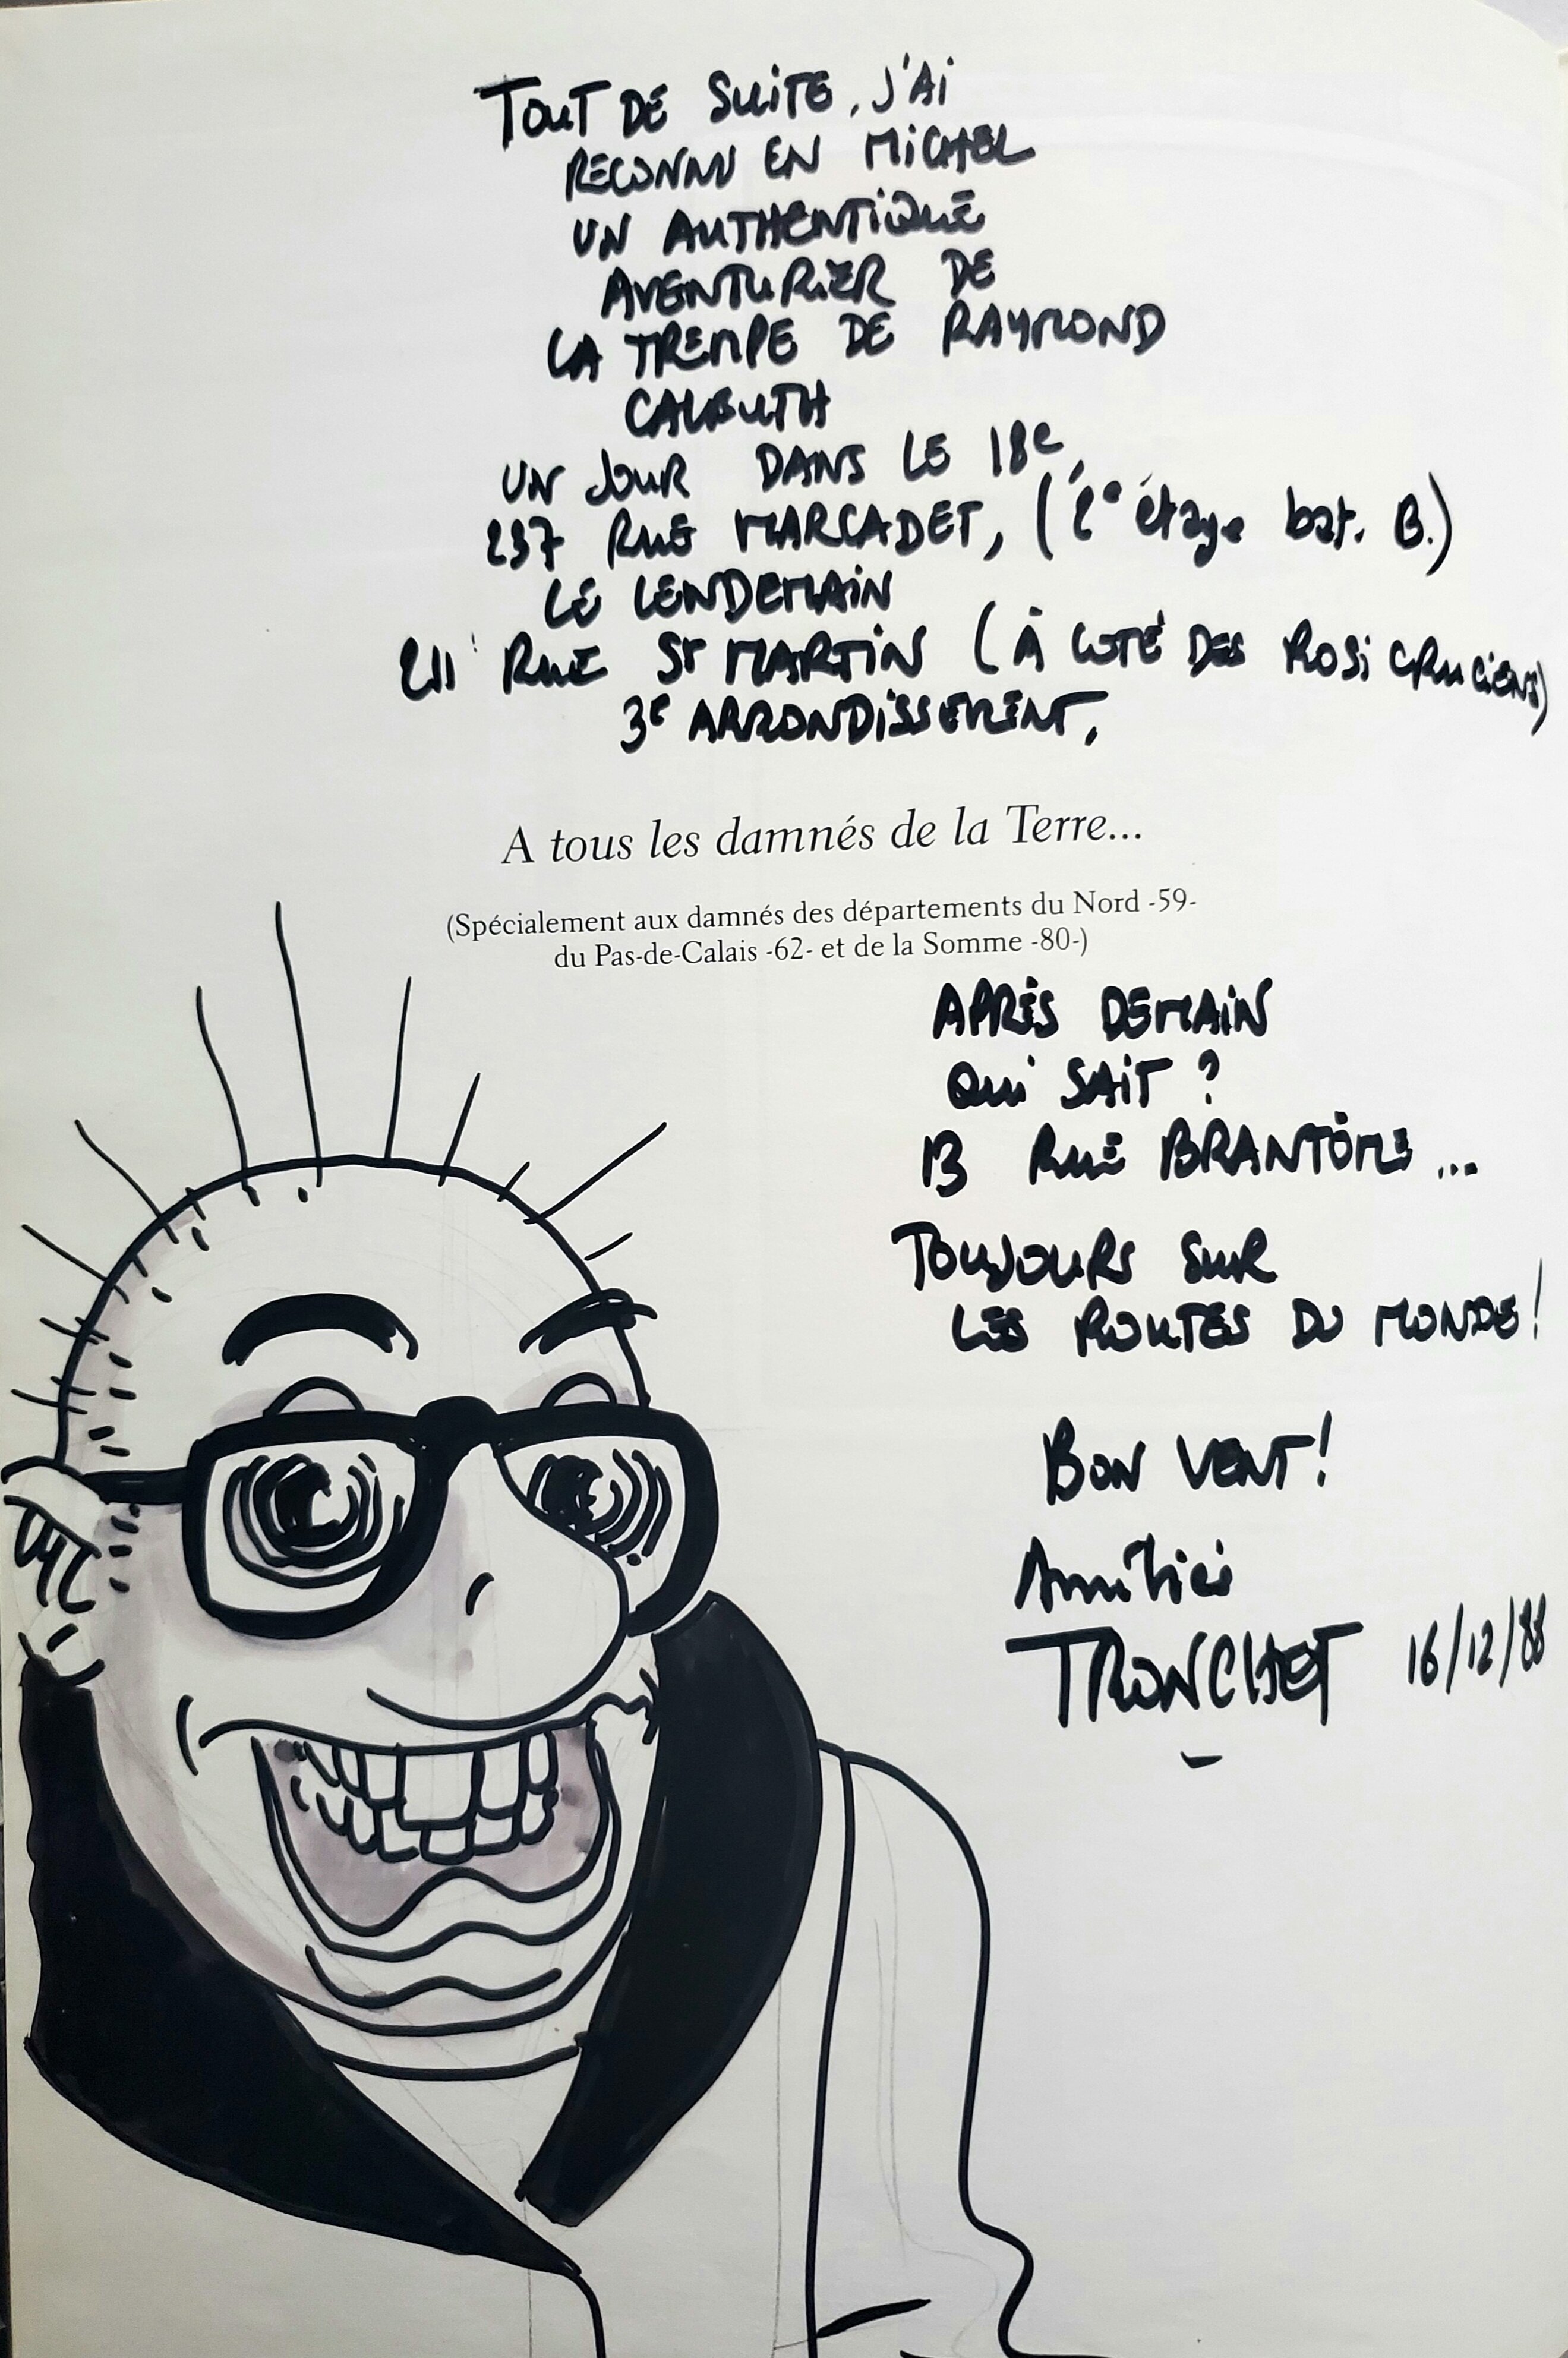 TOUT DE SUITE, J'AI
RECONNU EN MICHEL
UN AUTHENTIQUE
AVENTURIER DE
LA TREMPE DE RAYMOND
CALBUTH
UN JOUR DANS LE 18e,
237 RUE MARCADET, (2e étage bat. B.)
LE LENDEMAIN
211 RUE ST MARTIN (À COTÉ DES ROSI CRUCIENS)
3e ARRONDISSEMENT,
A tous les damnés de la Terre...
(Spécialement aux damnés des départements du Nord -59-
du Pas-de-Calais -62- et de la Somme -80-)
APRÈS DEMAIN
QUI SAIT ?
13 RUE BRANTÔME ...
TOUJOURS SUR
LES ROUTES DU MONDE !
BON VENT !
Amitiés
TRONCHET 16/12/88